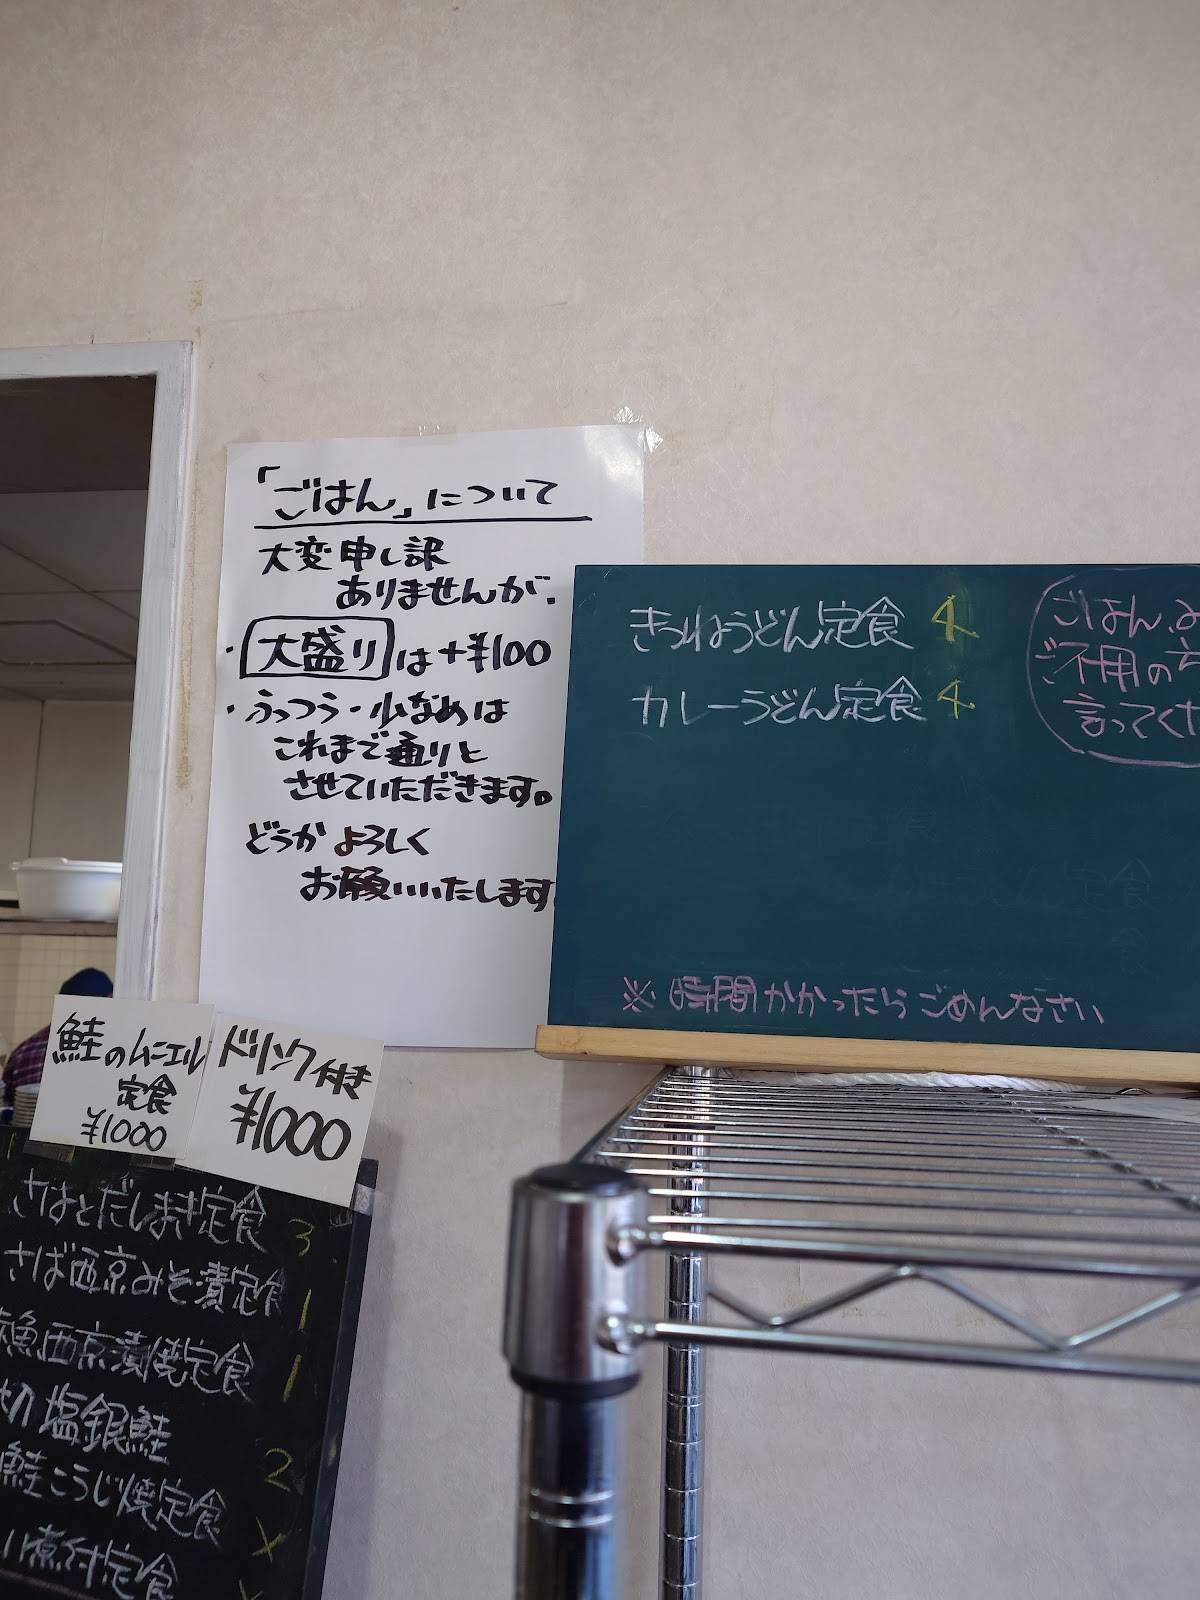 「ごはん」について
大変申し訳
ありませんが、
・大盛りは+¥100
・ふつう・少なめは
これまで通りと
させていただきます。
どうか よろしく
お願いいたします
きつねうどん定食 4
カレーうどん定食 4
ごはん、
ご不用の
言ってくだ
※時間かかったらごめんなさい
鮭のムニエル
定食
¥1000
ドリンク付き
¥1000
さばとだしまき定食 3
さば西京みそ漬定食 1
魚西京漬焼定食 1
切塩銀鮭 2
鮭こうじ焼定食 ×
煮付定食